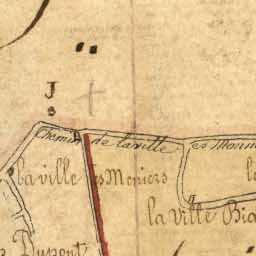 J
s
Chemin de la ville es Monn
la ville es Meniers
la
la ville Bia
Dupont